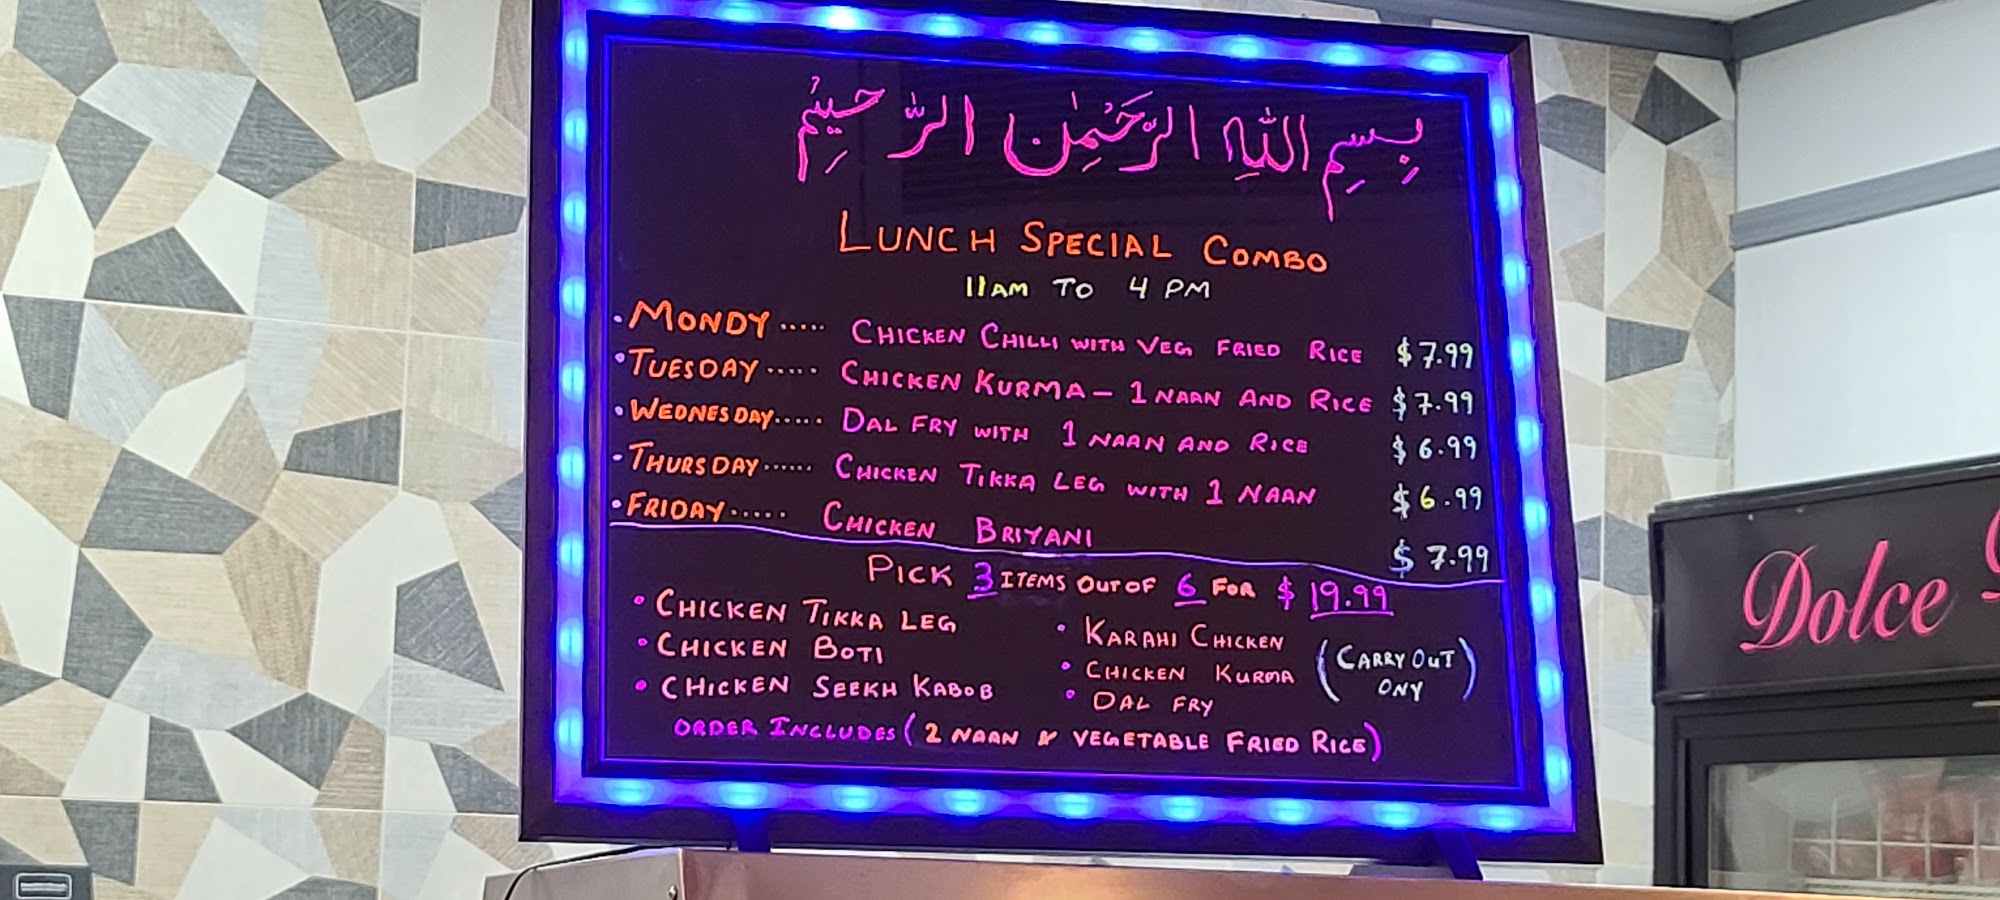 بِسْمِ اللهِ الرَّحْمٰنِ الرَّحِيْمِ
LUNCH SPECIAL COMBO
11AM TO 4 PM
• MONDY ..... CHICKEN CHILLI WITH VEG FRIED RICE $7.99
• TUESDAY ..... CHICKEN KURMA – 1 NAAN AND RICE $7.99
• WEDNESDAY ..... DAL FRY WITH 1 NAAN AND RICE $6.99
• THURSDAY ...... CHICKEN TIKKA LEG WITH 1 NAAN $6.99
• FRIDAY ..... CHICKEN BRIYANI $7.99
PICK 3 ITEMS OUT OF 6 FOR $19.99
• CHICKEN TIKKA LEG
• CHICKEN BOTI
• CHICKEN SEEKH KABOB
• KARAHI CHICKEN
• CHICKEN KURMA
• DAL FRY
(CARRY OUT
ONY)
ORDER INCLUDES (2 NAAN & VEGETABLE FRIED RICE)
Dolce